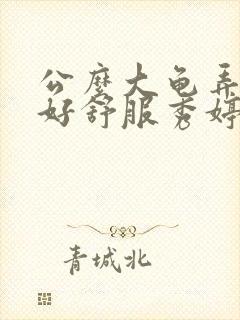 公麽大龟弄
好舒服秀婷
青城北